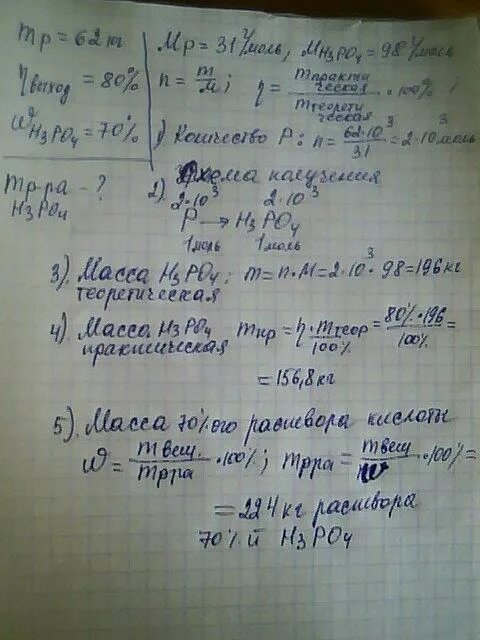 mp = 62 кг
ηвыход = 80%
ωH₃PO₄ = 70%
mр-ра - ?
H₃PO₄
Mp = 31 г/моль, MH₃PO₄ = 98 г/моль
n = m/M; η = mпракти ческая/mтеорети ческая · 100%;
1) Количество P: n = 62·10³/31 = 2·10³ моль
2). Схема получения
2·10³ 2·10³
P → H₃PO₄
1моль 1моль
3). Масса H₃PO₄: m = n·M = 2·10³·98 = 196 кг
теоретическая
4). Масса H₃PO₄ mпр = η·mтеор/100% = 80%·196/100% =
практическая
= 156,8 кг
5). Масса 70%ого раствора кислоты
ω = mвещ./mрра · 100%; mрра = mвещ/ω · 100% =
= 224 кг раствора
70%й H₃PO₄